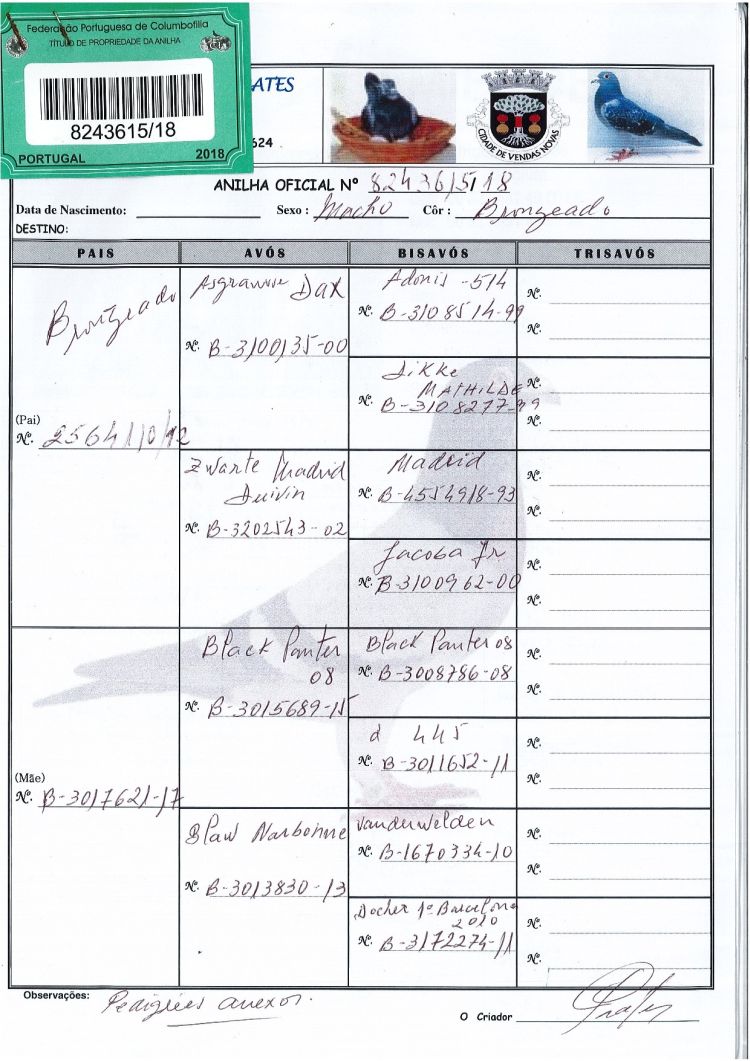 Federação Portuguesa de Columbofilia
TÍTULO DE PROPRIEDADE DA ANILHA
8243615/18
PORTUGAL 2018
ATES
624
CIDADE DE VENDAS NOVAS
ANILHA OFICIAL Nº 8243615/18
Data de Nascimento: Sexo: Macho Côr: Bronzeado
DESTINO:
PAIS AVÓS BISAVÓS TRISAVÓS
Bronzeado
(Pai)
Nº. 2564110/12
Dax
Nº. B-3100135-00
Zwarte Madrid
Duivin
Nº. B-3202543-02
Adonis -514
Nº. B-3108514-99
Dikke
MATHILDE
Nº. B-3108277-99
Madrid
Nº. B-4554918-93
Jacoba Jr
Nº. B-3100962-00
Nº.
Nº.
Nº.
Nº.
Nº.
Nº.
Nº.
Nº.
(Mãe)
Nº. B-3017621-17
Black Panter
08
Nº. B-3015689-15
Blaw Narbonne
Nº. B-3013830-13
Black Panter 08
Nº. B-3008786-08
d 445
Nº. B-3011652-11
Vanderwelden
Nº. B-1670334-10
Docher 1º Barcelona
2010
Nº. B-3172274-11
Nº.
Nº.
Nº.
Nº.
Nº.
Nº.
Nº.
Nº.
Observações: Pedigrées anexos.
O Criador Prates